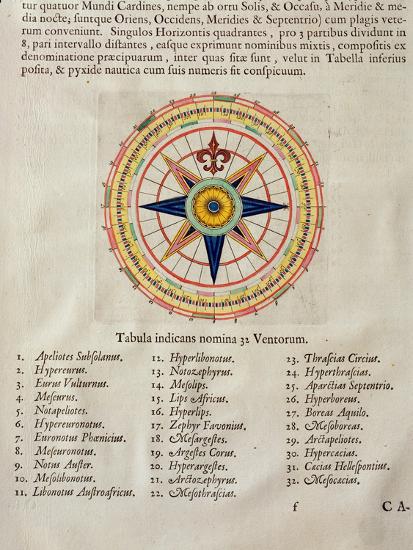 tur quatuor Mundi Cardines, nempe ab ortu Solis, & Occasu, à Meridie & me-
dia nocte; suntque Oriens, Occidens, Meridies & Septentrio) cum plagis vete-
rum conveniunt. Singulos Horizontis quadrantes, pro 3 partibus dividunt in
8, pari intervallo distantes, easque exprimunt nominibus mixtis, compositis ex
denominatione præcipuarum, inter quas sitæ sunt, velut in Tabella inferius
posita, & pyxide nautica cum suis numeris sit conspicuum.
Tabula indicans nomina 32 Ventorum.
1. Apeliotes Subsolanus.
2. Hypereurus.
3. Eurus Vulturnus.
4. Meseurus.
5. Notapeliotes.
6. Hypereuronotus.
7. Euronotus Phœnicius.
8. Meseuronotus.
9. Notus Auster.
10. Mesolibonotus.
11. Libonotus Austroafricus.
12. Hyperlibonotus.
13. Notozephyrus.
14. Mesolips.
15. Lips Africus.
16. Hyperlips.
17. Zephyr Favonius.
18. Mesargestes.
19. Argestes Corus.
20. Hyperargestes.
21. Arctozephyrus.
22. Mesothrascias.
23. Thrascias Circius.
24. Hyperthrascias.
25. Aparctias Septentrio.
26. Hyperboreus.
27. Boreas Aquilo.
28. Mesoboreas.
29. Arctapeliotes.
30. Hypercæcias.
31. Cæcias Hellespontius.
32. Mesocæcias.
f C A-